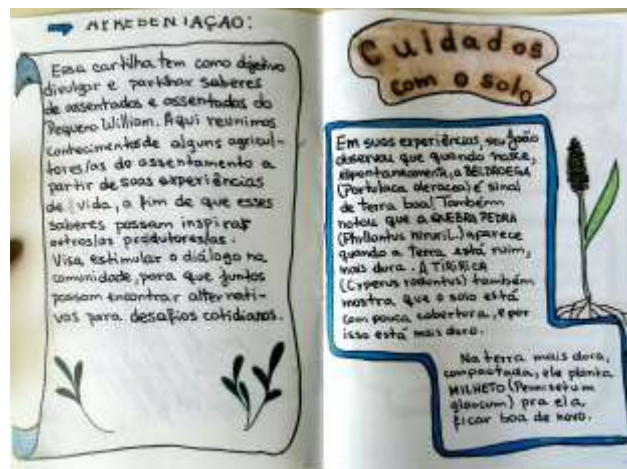 APRESENTAÇÃO:
Essa cartilha tem como objetivo
divulgar e partilhar saberes
de assentados e assentadas do
Pequeno William. Aqui reunimos
conhecimentos de alguns agricul-
tores/as do assentamento a
partir de suas experiências
de vida, a fim de que esses
saberes possam inspirar
outros/as produtores/as.
Visa estimular o diálogo na
comunidade, para que juntos
possam encontrar alternati-
vas para desafios cotidianos.
Cuidados
com o solo
Em suas experiências, seu João
observou que quando nasce,
espontaneamente, a BELDROEGA
(Portulaca oleracea) é sinal
de terra boa! Também
notou que a QUEBRA PEDRA
(Phyllantus niruriL.) aparece
quando a Terra está ruim,
mais dura. A TIRIRICA
(Cyperus rodontus) também
mostra que o solo está
com pouca cobertura, e por
isso está mais duro.
Na terra mais dura,
compactada, ele planta
MILHETO (Pennisetum
glaucum) pra ela
ficar boa de novo.